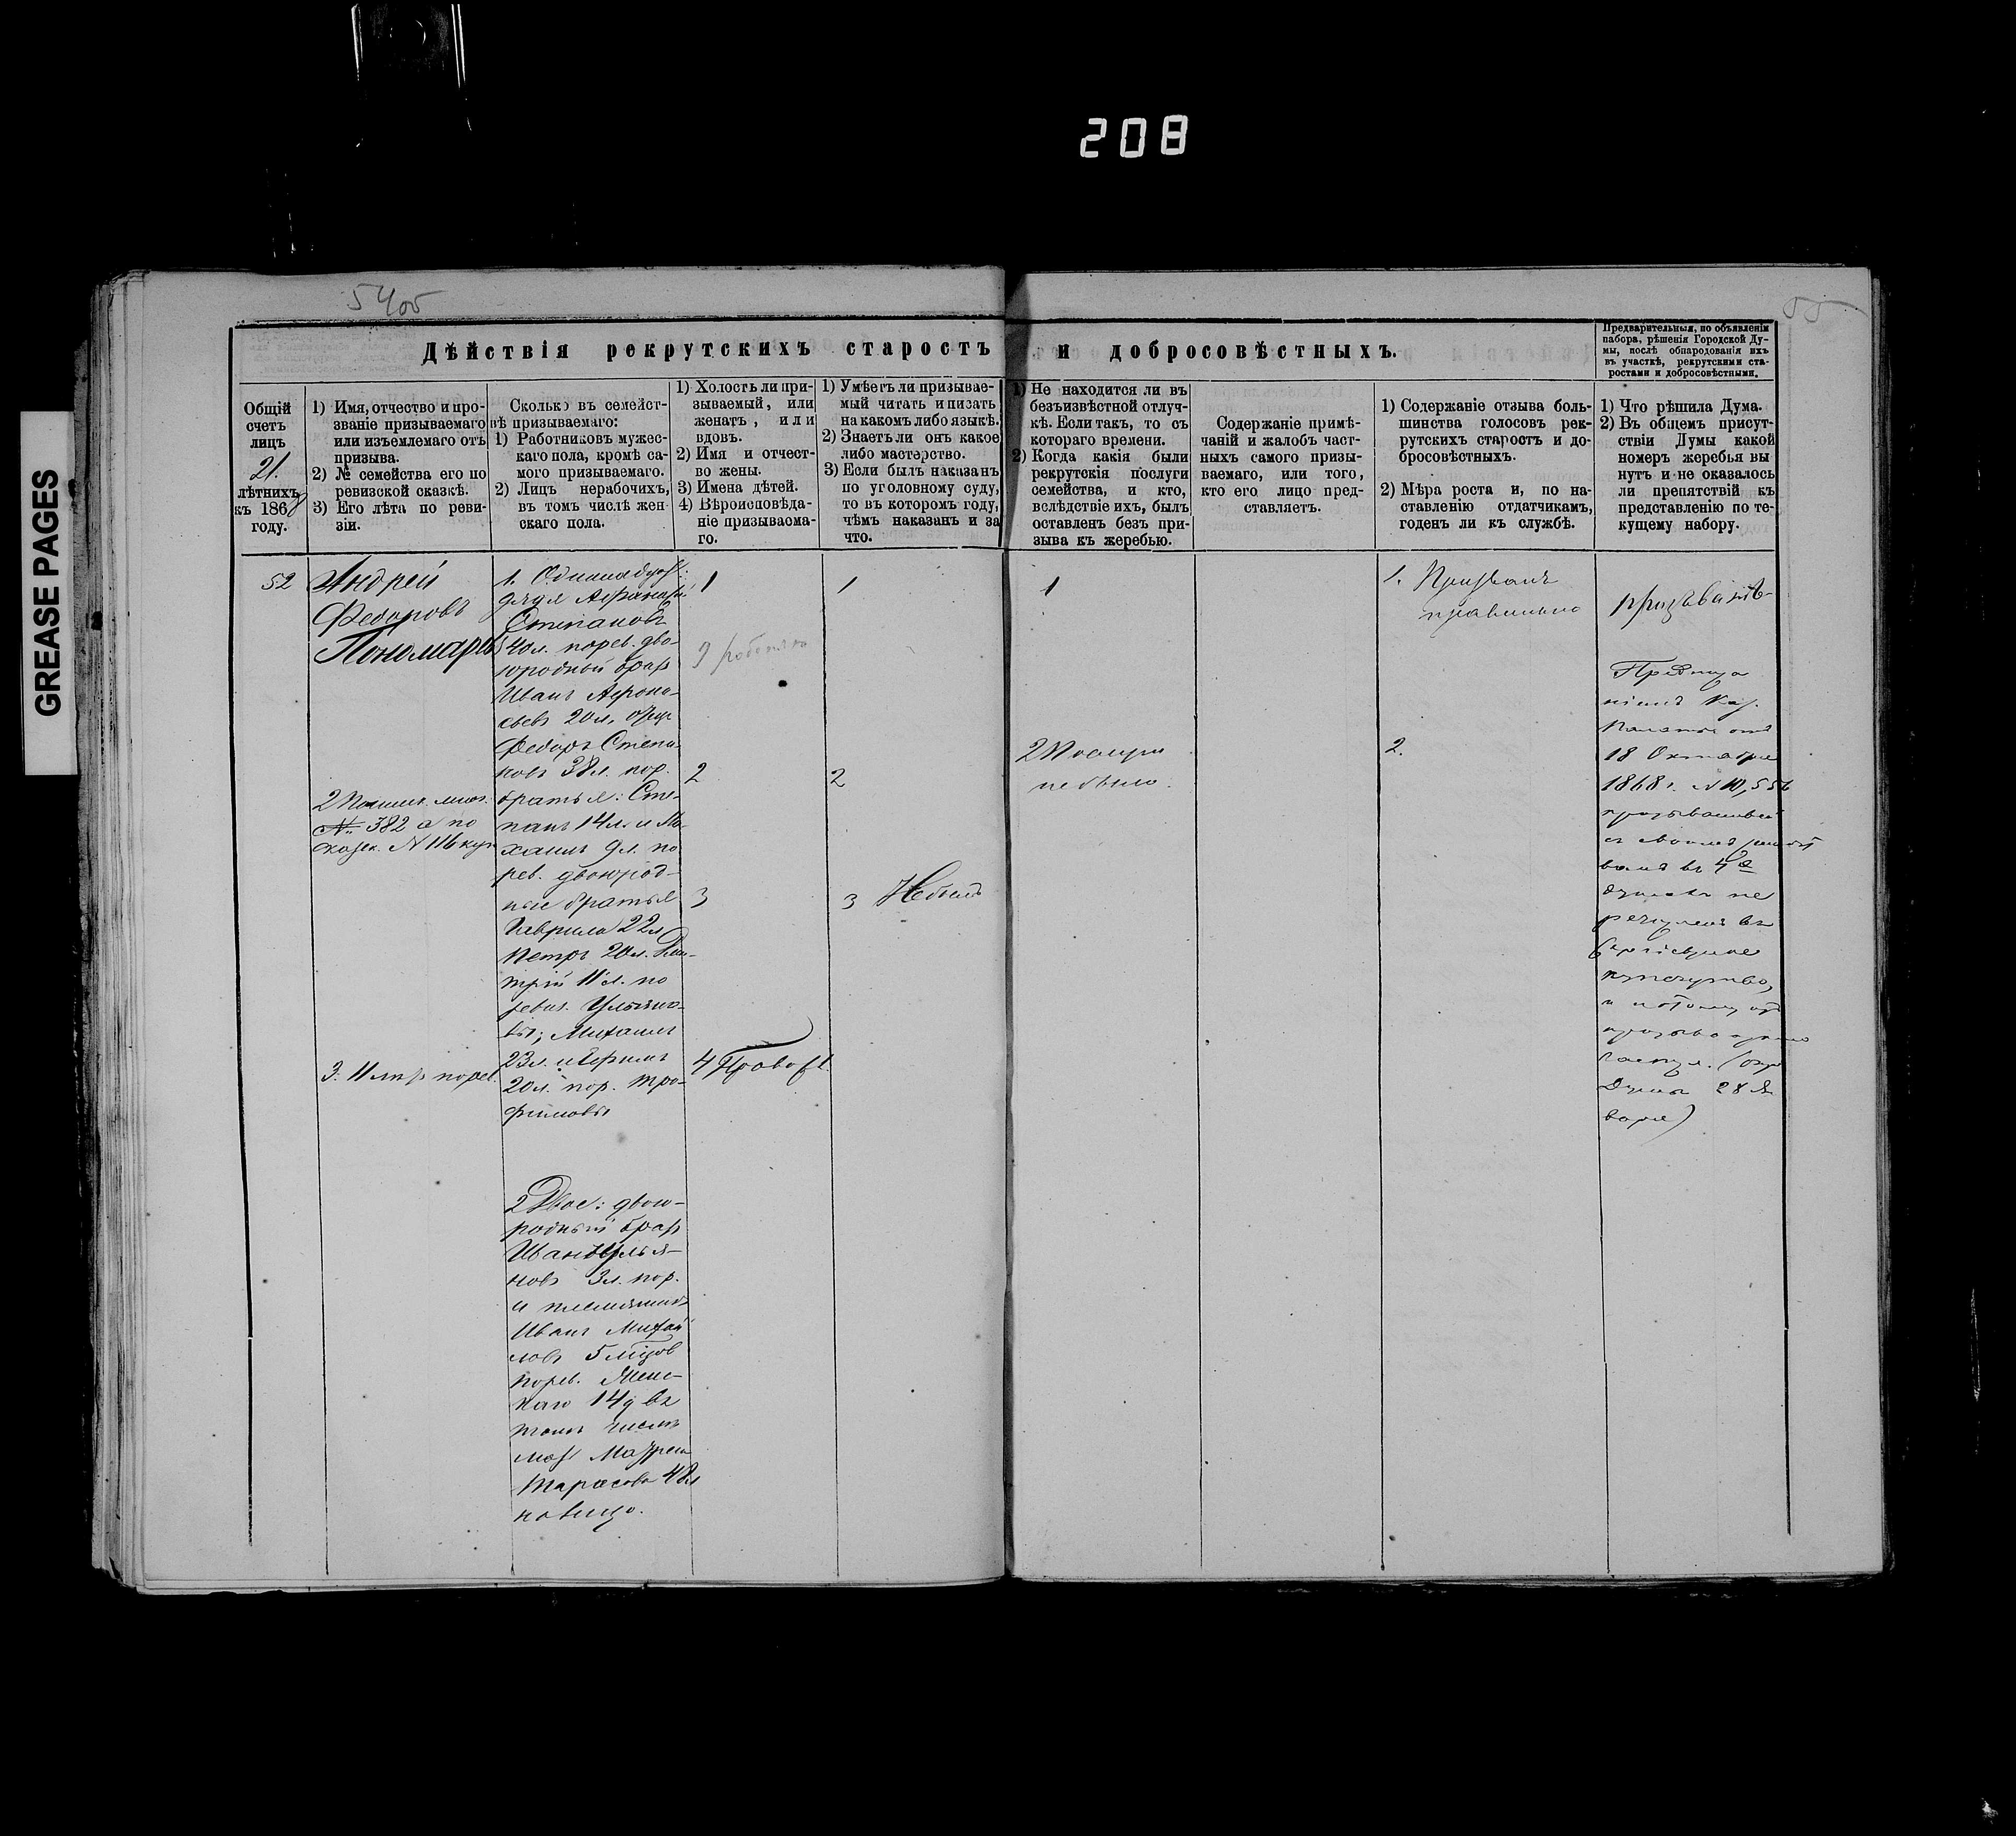 208
GREASE PAGES
54об
55
Дѣйствія рекрутскихъ старостъ и добросовѣстныхъ.
Предварительныя, по объявленіи
набора, рѣшенія Городской Ду-
мы, послѣ обнародованія ихъ
въ участкѣ, рекрутскими ста-
ростами и добросовѣстными.
Общій
счетъ
лицъ
21.
лѣтнихъ
къ 1868
году.
1) Имя, отчество и про-
званіе призываемаго
или изъемлемаго отъ
призыва.
2) № семейства его по
ревизской сказкѣ.
3) Его лѣта по реви-
зіи.
Сколько въ семейст-
вѣ призываемаго:
1) Работниковъ мужес-
каго пола, кромѣ са-
мого призываемаго.
2) Лицъ нерабочихъ,
въ томъ числѣ жен-
скаго пола.
1) Холостъ ли при-
зываемый, или
женатъ, или
вдовъ.
2) Имя и отчест-
во жены.
3) Имена дѣтей.
4) Вѣроисповѣда-
ніе призываема-
го.
1) Умѣетъ ли призывае-
мый читать и писать
на какомъ либо языкѣ.
2) Знаетъ ли онъ какое
либо мастерство.
3) Если былъ наказанъ
по уголовному суду,
то въ которомъ году,
чѣмъ наказанъ и за
что.
1) Не находится ли въ
безъизвѣстной отлуч-
кѣ. Если такъ, то съ
котораго времени.
2) Когда какія были
рекрутскія послуги
семейства, и кто,
вслѣдствіе ихъ, былъ
оставленъ безъ при-
зыва къ жеребью.
Содержаніе примѣ-
чаній и жалобъ част-
ныхъ самого призы-
ваемаго, или того,
кто его лицо пред-
ставляетъ.
1) Содержаніе отзыва боль-
шинства голосовъ рек-
рутскихъ старостъ и до-
бросовѣстныхъ.
2) Мѣра роста и, по на-
ставленію отдатчикамъ,
годенъ ли къ службѣ.
1) Что рѣшила Дума.
2) Въ общемъ присут-
ствіи Думы какой
номеръ жеребья вы
нутъ и не оказалось
ли препятствій къ
представленію по те-
кущему набору.
52
Андрей
Федоровъ
Пономаревъ
№ 382 а по
3. 11 лѣтъ порев.
дядя Афанасій
Степановъ
54 л. порев. дво-
юродный братъ
Иванъ Афона-
сьевъ 20 л. отецъ
Федоръ Степа-
новъ 38 л. пор.
братья: Сте-
панъ 14 л. и Ми-
хаилъ 9 л. по
рев. двоюрод-
ные братья
Гаврила 22 л
Петръ 20 л. Дми-
трій 11 л. по
ревиз. Ульяно-
вы; Михаилъ
23 л. и Ефимъ
20 л. пор. Тро-
фимовы
2 Двое: двою-
родный братъ
Иванъ Улья-
новъ 3 л. пор.
и племянникъ
Иванъ Михай
ловъ 5 мѣсяцов
порев. Женс-
каго 14 д въ
томъ числѣ
мать
Тарасова 48 л
1
2
3
4 Правосл.
1
2
3 Небылъ
1
2 Послуги
не было.
1. Призванъ
правильно
2.
призвать
Каз.
Палаты отъ
18 Октября
1868 г. № 10,556
купечество,
и потому отъ
Думы 28 Ян
варя)